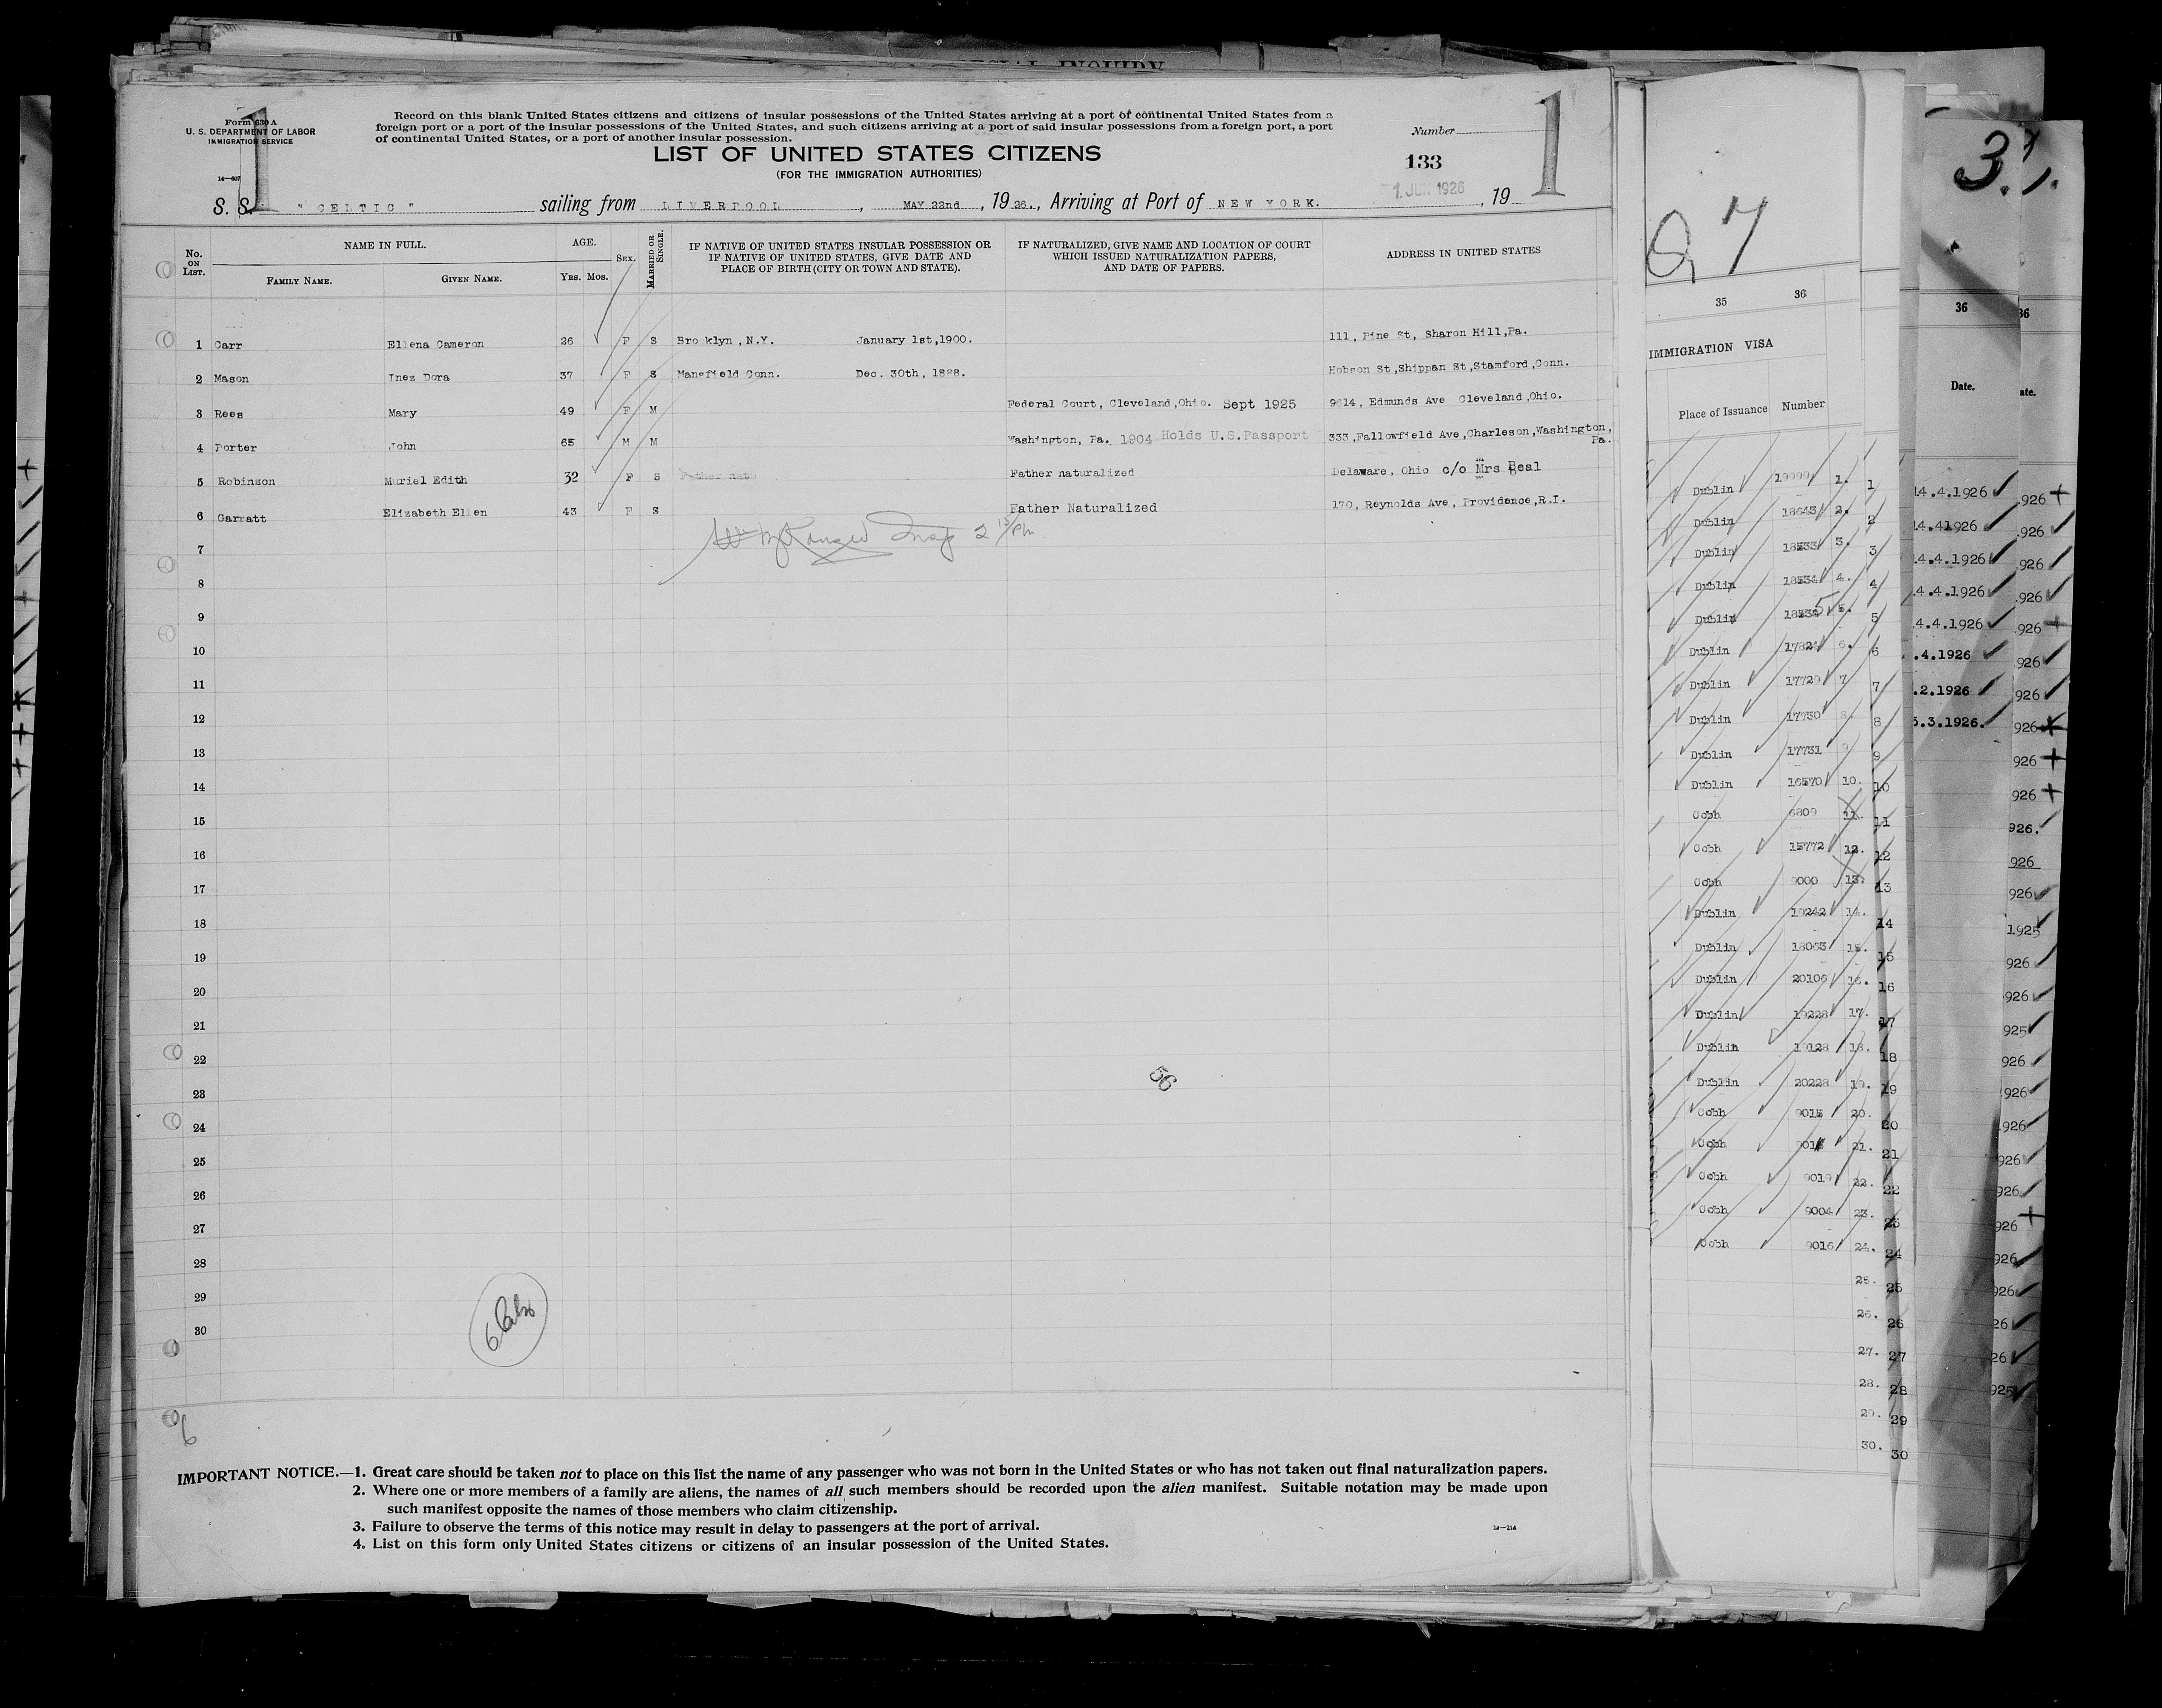 SPECIAL INQUIRY
1
Form 630 A
U. S. DEPARTMENT OF LABOR
IMMIGRATION SERVICE
14—607
Record on this blank United States citizens and citizens of insular possessions of the United States arriving at a port of continental United States from a
foreign port or a port of the insular possessions of the United States, and such citizens arriving at a port of said insular possessions from a foreign port, a port
of continental United States, or a port of another insular possession.
LIST OF UNITED STATES CITIZENS
(FOR THE IMMIGRATION AUTHORITIES)
Number
133
1
S. S. " CELTIC " sailing from LIVERPOOL , MAY 22nd , 19 26. , Arriving at Port of NEW YORK. 1 JUN 1926 , 19
No. ON LIST. NAME IN FULL. AGE. SEX. MARRIED OR SINGLE. IF NATIVE OF UNITED STATES INSULAR POSSESSION OR IF NATIVE OF UNITED STATES, GIVE DATE AND PLACE OF BIRTH (CITY OR TOWN AND STATE). IF NATURALIZED, GIVE NAME AND LOCATION OF COURT WHICH ISSUED NATURALIZATION PAPERS, AND DATE OF PAPERS. ADDRESS IN UNITED STATES
FAMILY NAME. GIVEN NAME. YRS. MOS.
1 Carr Ellena Cameron 26 F S Brooklyn, N.Y. January 1st, 1900. 111, Pine St, Sharon Hill, Pa.
2 Mason Inez Dora 37 F S Mansfield Conn. Dec. 30th, 1888. Hobson St, Shippan St, Stamford, Conn.
3 Rees Mary 49 F M Federal Court, Cleveland, Ohio. Sept 1925 9614, Edmunds Ave Cleveland, Ohio.
4 Porter John 65 M M Washington, Pa. 1904 Holds U.S. Passport 333, Fallowfield Ave, Charleson, Washington, Pa.
5 Robinson Muriel Edith 32 F S Father natu Father naturalized Delaware, Ohio c/o Mrs Beal
6 Garratt Elizabeth Ellen 43 F S Father Naturalized 170, Reynolds Ave, Providence, R.I.
7
8
9
10
11
12
13
14
15
16
17
18
19
20
21
22
23
24
25
26
27
28
29
30
56
6
IMPORTANT NOTICE.—1. Great care should be taken not to place on this list the name of any passenger who was not born in the United States or who has not taken out final naturalization papers.
2. Where one or more members of a family are aliens, the names of all such members should be recorded upon the alien manifest. Suitable notation may be made upon
such manifest opposite the names of those members who claim citizenship.
3. Failure to observe the terms of this notice may result in delay to passengers at the port of arrival.
4. List on this form only United States citizens or citizens of an insular possession of the United States.
14—214
35 36
IMMIGRATION VISA
Place of Issuance Number
Dublin 19999 1. 1
Dublin 18643 2. 2
Dublin 18533 3. 3
Dublin 18534 4. 4
Dublin 18535 5. 5
Dublin 17824 6. 6
Dublin 17729 7 7
Dublin 17730 8. 8
Dublin 17731 9
Dublin 16570 10. 10
Cobh 6809 11. 11
Cobh 15772 12. 12
Cobh 9000 13. 13
Dublin 19242 14. 14
Dublin 18063 15. 15
Dublin 20106 16. 16
Dublin 19228 17. 17
Dublin 19128 18. 18
Dublin 20228 19. 19
Cobh 9015 20. 20
Cobh 21. 21
Cobh 9019 22. 22
Cobh 9004 23. 23
Cobh 9016 24. 24
25. 25
26. 26
27. 27
28. 28
29. 29
30. 30
36
Date.
14.4.1926
14.41926
14.4.1926
4.4.1926
4.4.1926
.4.1926
.2.1926
5.3.1926.
36
ate.
926
926
926
926
926
926
926
926
926
926
926.
926
926
1925
926
926
925
926
926
926
926
926
926
926
926
26
26
925